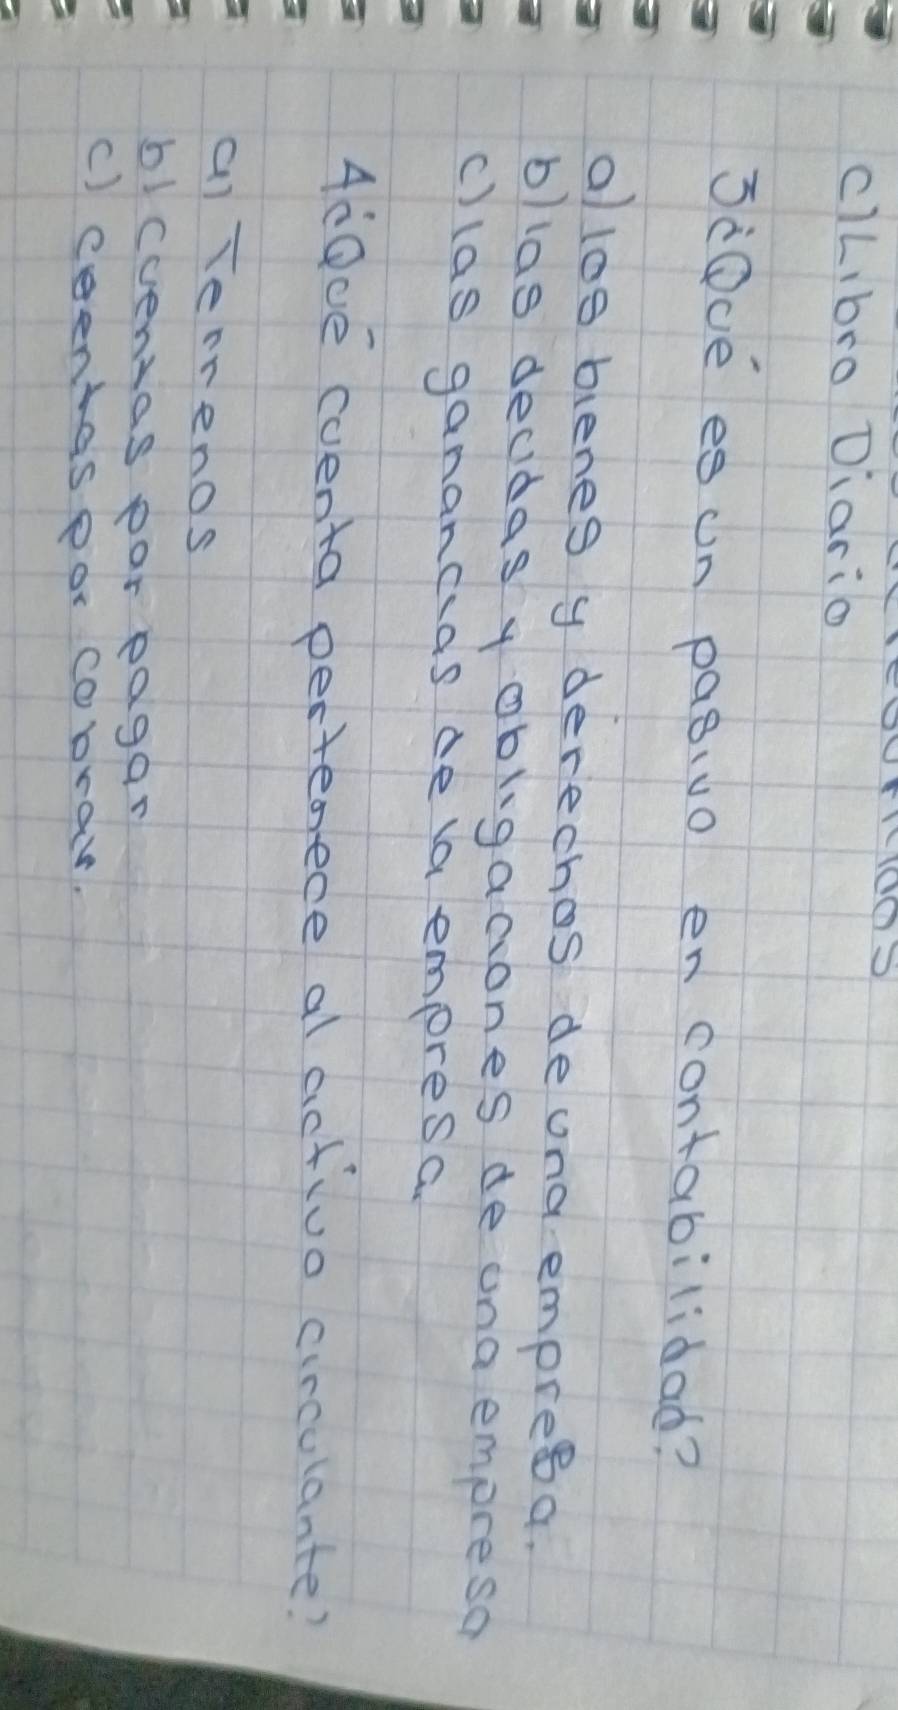 c) Libro Diario
3¿Qué es un pasivo en contabilidad?
a) los bienes y derechos de una empresa.
b) las deudas y obligaciones de una empresa
c) las ganancias de la empresa
4¿Qué cuenta pertenece al activo circulante?
a) Terrenos
b) cuentas por pagar
c) cuentas por cobrar.